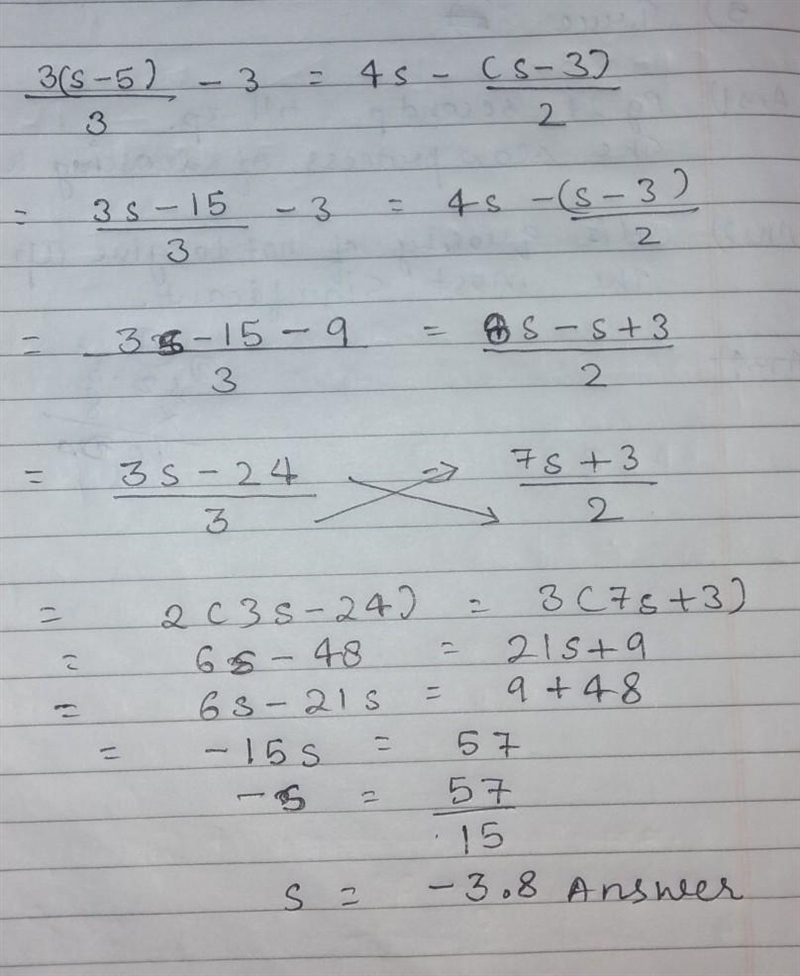 3(s-5)/3 - 3 = 4s - (s-3)/2
= 3s-15/3 - 3 = 4s - (s-3)/2
= 3s-15-9/3 = 8s-s+3/2
= 3s-24/3 7s+3/2
= 2(3s-24) = 3(7s+3)
= 6s-48 = 21s+9
= 6s-21s = 9+48
= -15s = 57
-s = 57/15
s = -3.8 Answer